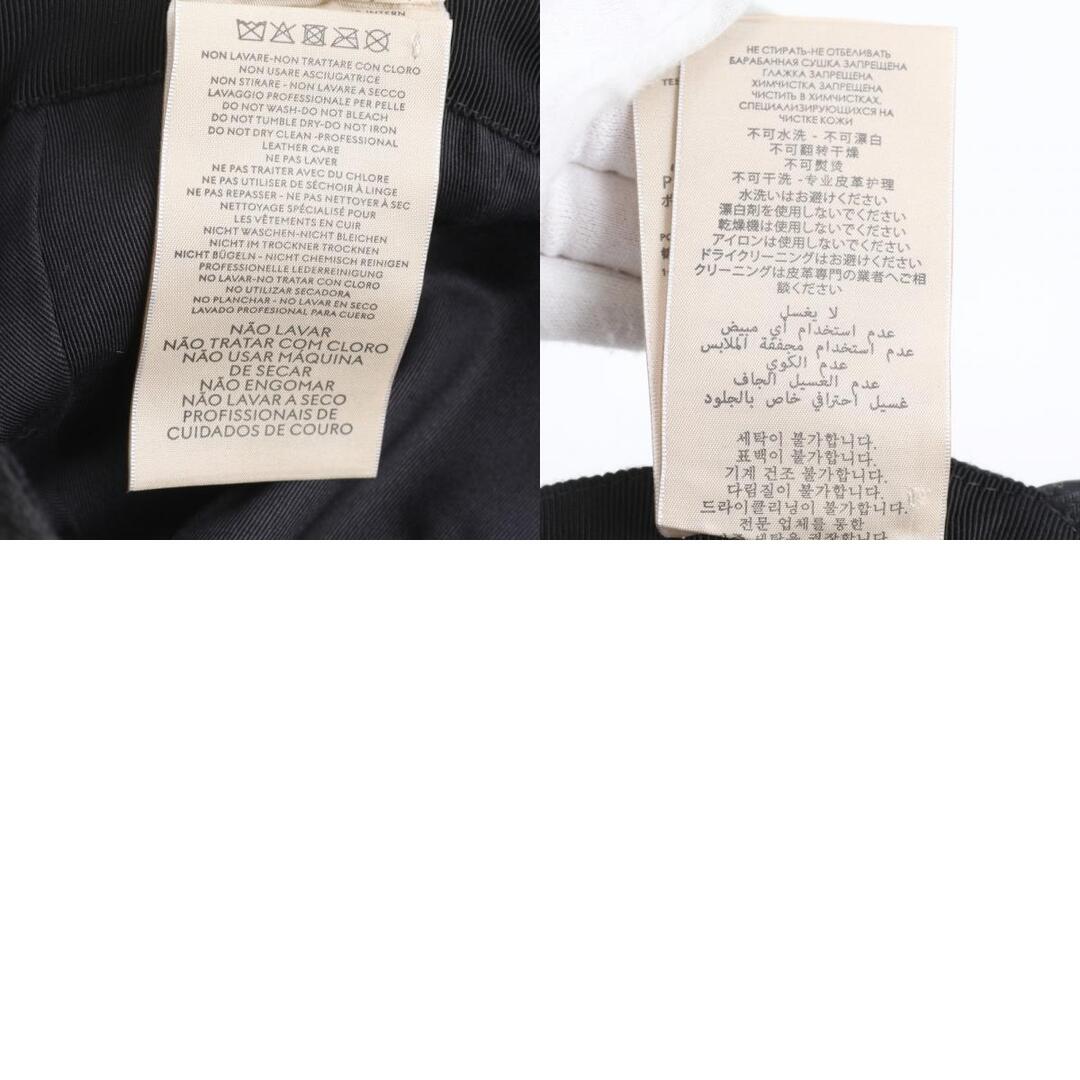 INTERN
NON LAVARE-NON TRATTARE CON CLORO
NON USARE ASCIUGATRICE
NON STIRARE - NON LAVARE A SECCO
LAVAGGIO PROFESSIONALE PER PELLE
DO NOT WASH-DO NOT BLEACH
DO NOT TUMBLE DRY-DO NOT IRON
DO NOT DRY CLEAN -PROFESSIONAL
LEATHER CARE
NE PAS LAVER
NE PAS TRAITER AVEC DU CHLORE
NE PAS UTILISER DE SÉCHOIR À LINGE
NE PAS REPASSER - NE PAS NETTOYER À SEC
NETTOYAGE SPÉCIALISÉ POUR
LES VÊTEMENTS EN CUIR
NICHT WASCHEN-NICHT BLEICHEN
NICHT IM TROCKNER TROCKNEN
NICHT BÜGELN - NICHT CHEMISCH REINIGEN
PROFESSIONELLE LEDERREINIGUNG
NO LAVAR-NO TRATAR CON CLORO
NO UTILIZAR SECADORA
NO PLANCHAR - NO LAVAR EN SECO
LAVADO PROFESIONAL PARA CUERO
NÃO LAVAR
NÃO TRATAR COM CLORO
NÃO USAR MÁQUINA
DE SECAR
NÃO ENGOMAR
NÃO LAVAR A SECO
PROFISSIONAIS DE
CUIDADOS DE COURO
НЕ СТИРАТЬ-НЕ ОТБЕЛИВАТЬ
БАРАБАННАЯ СУШКА ЗАПРЕЩЕНА
ГЛАЖКА ЗАПРЕЩЕНА
ХИМЧИСТКА ЗАПРЕЩЕНА
ЧИСТИТЬ В ХИМЧИСТКАХ,
СПЕЦИАЛИЗИРУЮЩИХСЯ НА
ЧИСТКЕ КОЖИ
不可水洗 - 不可漂白
不可翻转干燥
不可熨烫
不可干洗 -专业皮革护理
水洗いはお避けください
漂白剤を使用しないでください
乾燥機は使用しないでください
アイロンは使用しないでください
ドライクリーニングはお避けください
クリーニングは皮革専門の業者へご相
談ください
لا يغسل
عدم استخدام أي مبيض
عدم استخدام مجففة الملابس
عدم الكوي
عدم الغسيل الجاف
غسيل احترافي خاص بالجلود
세탁이 불가합니다.
표백이 불가합니다.
기계 건조 불가합니다.
다림질이 불가합니다.
드라이클리닝이 불가합니다.
전문 업체를 통한